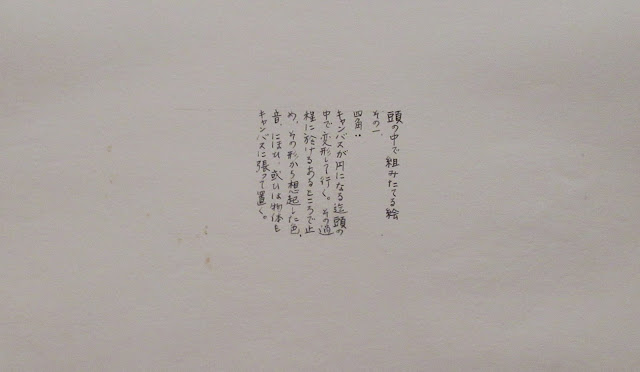 頭の中で組みたてる絵
その一、
四角：
キャンバスが円になる迄頭の
中で変形して行く。その過
程に於けるあるところで止
め、その形から想起した色、
音、にほひ、或ひは物体を
キャンバスに張って置く。